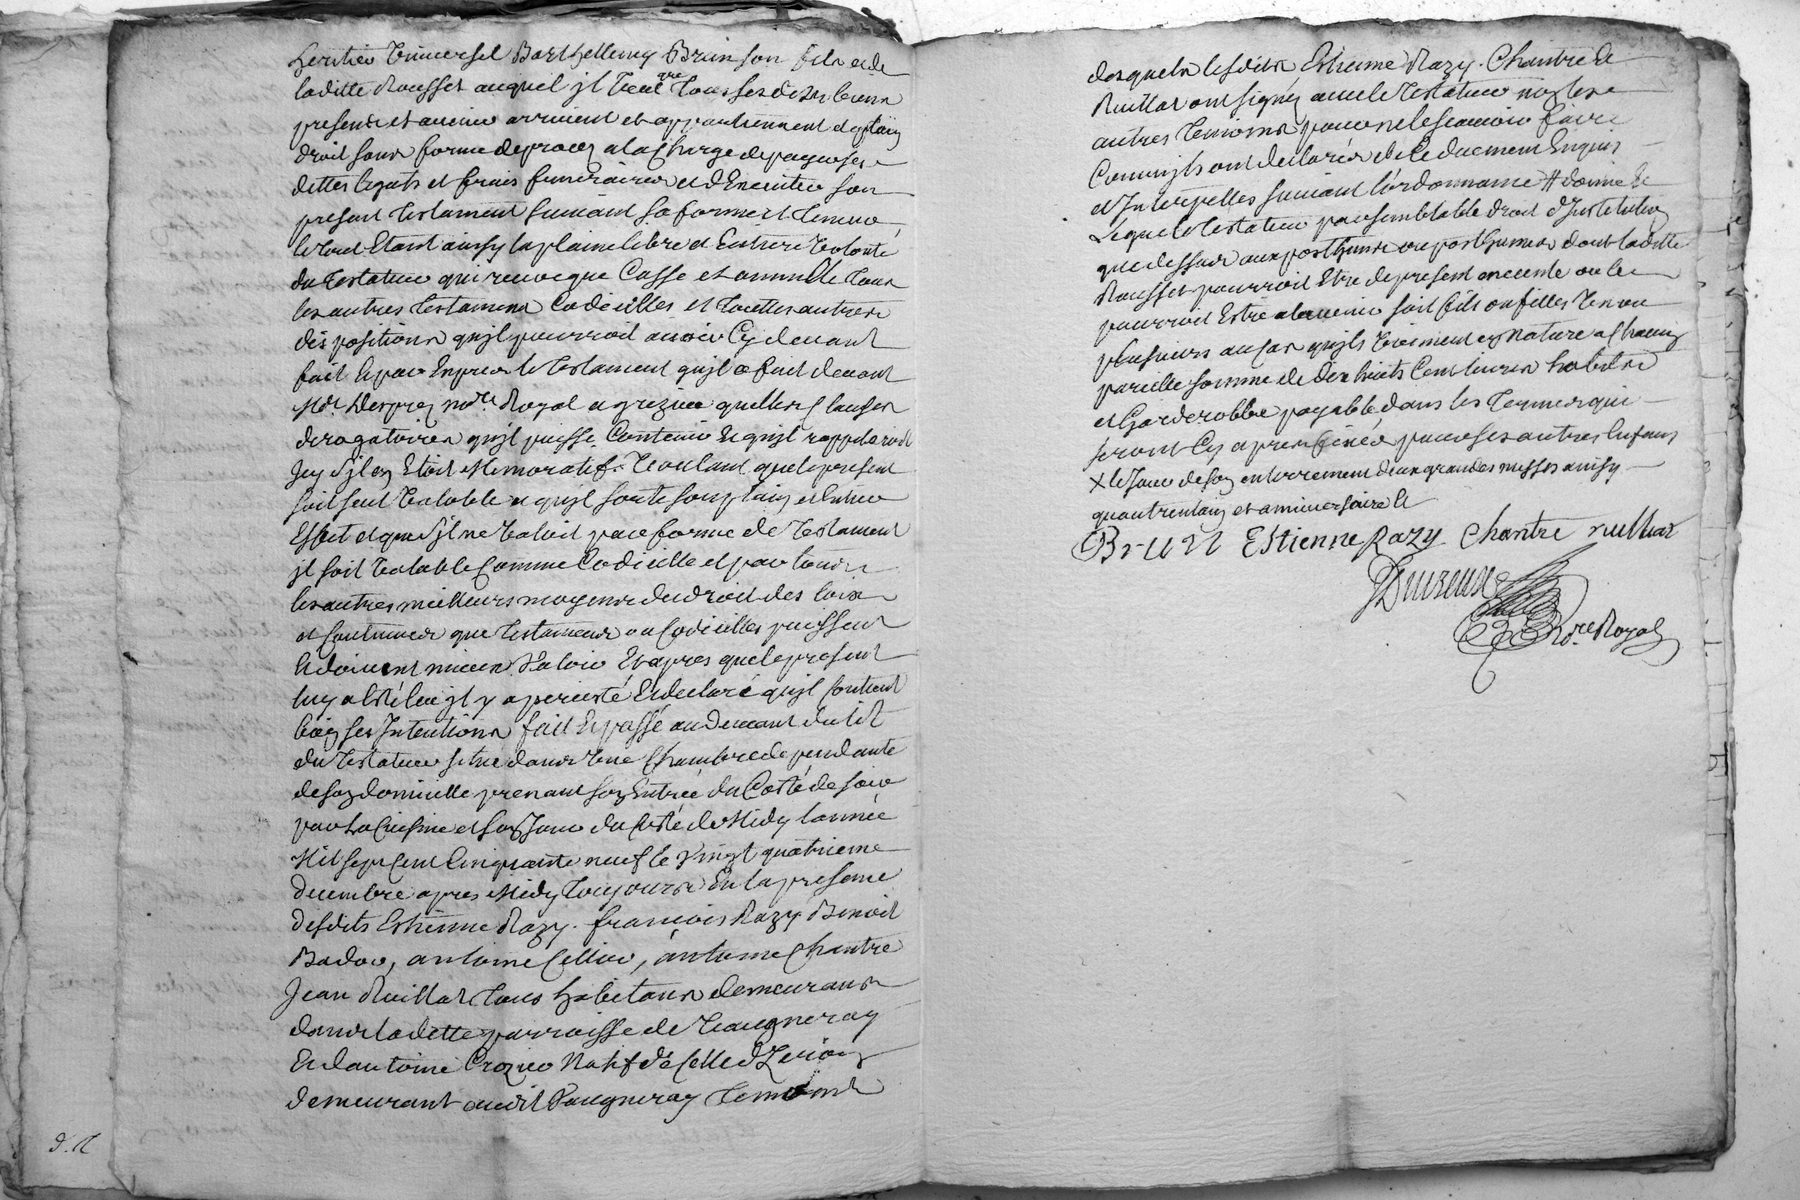 heritier Universel Barthellemy Brun son fils et de
laditte Rousset auquel jl veut que tous sesdits biens
presents et avenir arrivient et appartiennent de plain
droit sans forme de procez a la charge de payer ses
dettes legats et frais funeraires et d'Executer son
present testament suivant sa forme et teneur
le tout Etant aussy la plaine libre et Entiere volonté
du testateur qui revocque Casse et annulle tous
les autres testamens Codicilles et touttes autres
dispositions qu'jl pourroit avoir Cy devant
fait Et par Exprez le testament qu'jl a fait devant
Me. notre. Royal a grezieu quelles Clauses
derogatoires qu'jl puisse Contenir Et qu'jl rappeleroit
Jcy s'jl en Etoit Memoratif. voulant que le present
soit seul valable et qu'jl sorte son plain et Entier
Effet et que s'jl ne valoit par forme de testament
jl soit valable Comme Codicille et par tous
les autres meilleurs moyens du droit des loix
et Coutumes que testamens ou Codicilles puissent
Et doivent mieux valoir Et apres que le present
luy a Esté leu jl y a persisté Et declaré qu'jl Contient
bien ses Intentions fait Et passé au devant du lit
du testateur situé dans une Chambre dependante
de son domicille prenant son Entrée du Costé de soir
par la Cuisine et son Jour du Costé de Midy l'année
Mil sept Cent Cinquante neuf le vingt quatrieme
decembre apres Midy toujours En la presence
desdits Estienne Razy. françois Razy Benoit
Badou, antoine Cellier, antoine Chantre
Jean Ruillat tous habitans demeurans
dans laditte parroisse de vaugneray
Et d'antoine Crozier Natif de Celle d'
demeurant audit Vaugneray temoins
desquels lesdits Estienne Razy. Chantre et
Ruillat ont signez avec le testateur non les
autres temoins pour ne le scavoir faire
Comm'jls ont declarés et de ce duement Enquis
et Interpellés suivant l'ordonnance # donne et
Legue le testateur par semblable droit d'Institution
que dessus aux posthume ou posthumes dont laditte
Rousset pourroit Etre de present enceinte ou le
pourroit Estre a l'avenir soit fils ou filles un ou
plusieurs au cas qu'jls viennent en Nature a chacun
pareille somme de dix huits Cent livres habits
et Garderobbe payable dans les termes qui
seront Cy apres fixés pour ses autres Enfans
X le Jour de son enterrement deux grandes messes aussy
quantrentain et anniversaire et
Brun Estienne Razy Chantre rulliat
Dureux
No.re Royal
d. R